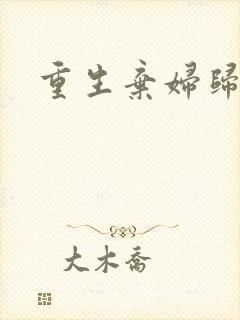 重生棄婦歸
大木喬